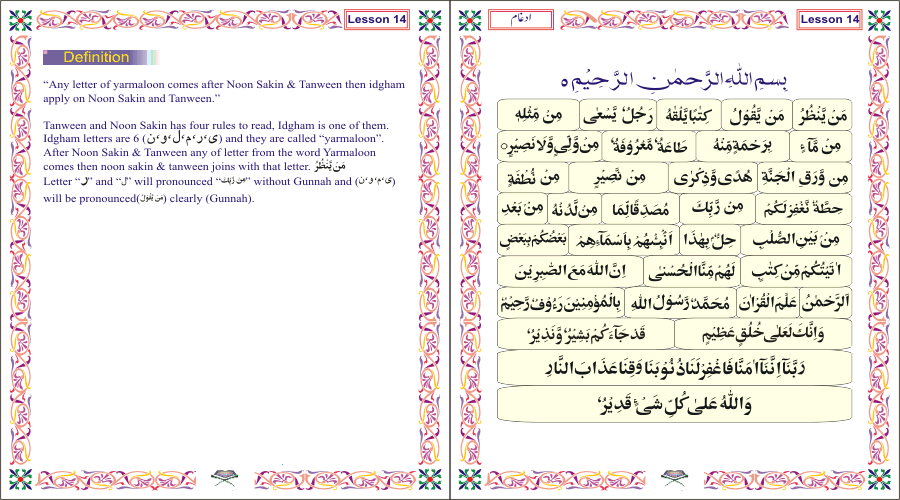 Lesson 14
Definition
“Any letter of yarmaloon comes after Noon Sakin & Tanween then idgham
apply on Noon Sakin and Tanween.”
Tanween and Noon Sakin has four rules to read, Idgham is one of them.
Idgham letters are 6 (ی، ر، م، ل، و، ن) and they are called “yarmaloon”.
After Noon Sakin & Tanween any of letter from the word Yarmaloon
comes then noon sakin & tanween joins with that letter. مَنۡ يَّنۡظُرُ
Letter “ر” and “ل” will pronounced “مِنۡ رَّبِّكَ” without Gunnah and (ی، م، و، ن)
will be pronounced(مَنۡ يَّقُوۡلُ) clearly (Gunnah).
ادغام
Lesson 14
بِسۡمِ اللّٰهِ الرَّحۡمٰنِ الرَّحِيۡمِ ٥
مَنۡ يَّنۡظُرُ مَنۡ يَّقُوۡلُ كِتٰبًا يَّلۡقٰهُ رَجُلٌ يَّسۡعٰى مِنۡ مِّثۡلِهٖ
مِنۡ مَّآءٍ بِرَحۡمَةٍ مِّنۡهُ طَاعَةٌ مَّعۡرُوۡفَةٌ مِنۡ وَّلِىٍّ وَّلَا نَصِيۡرٍ
مِنۡ وَّرَقِ الۡجَنَّةِ هُدًى وَّذِكۡرٰى مِنۡ نَّصِيۡرٍ مِنۡ نُّطۡفَةٍ
حِطَّةٌ نَّغۡفِرۡلَكُمۡ مِنۡ رَّبِّكَ مُصَدِّقًا لِّمَا مِنۡ لَّدُنۡهُ مِنۡۢ بَعۡدِ
مِنۡۢ بَيۡنِ الصُّلۡبِ حِلٌّۢ بِهٰذَا اَنۡۢبِئۡهُمۡ بِاَسۡمَآءِهِمۡ بَعۡضُكُمۡ بِبَعۡضٍ
اٰتَيۡتُكُمۡ مِّنۡ كِتٰبٍ لَهُمۡ مِّنَّا الۡحُسۡنٰى اِنَّ اللّٰهَ مَعَ الصّٰبِرِيۡنَ
اَلرَّحۡمٰنُ عَلَّمَ الۡقُرۡاٰنَ مُحَمَّدٌ رَّسُوۡلُ اللّٰهِ بِالۡمُؤۡمِنِيۡنَ رَءُوۡفٌ رَّحِيۡمٌ
وَاِنَّكَ لَعَلٰى خُلُقٍ عَظِيۡمٍ قَدۡ جَآءَكُمۡ بَشِيۡرٌ وَّنَذِيۡرٌ
رَبَّنَآ اِنَّنَآ اٰمَنَّا فَاغۡفِرۡ لَنَا ذُنُوۡبَنَا وَقِنَا عَذَابَ النَّارِ
وَاللّٰهُ عَلٰى كُلِّ شَىۡءٍ قَدِيۡرٌ